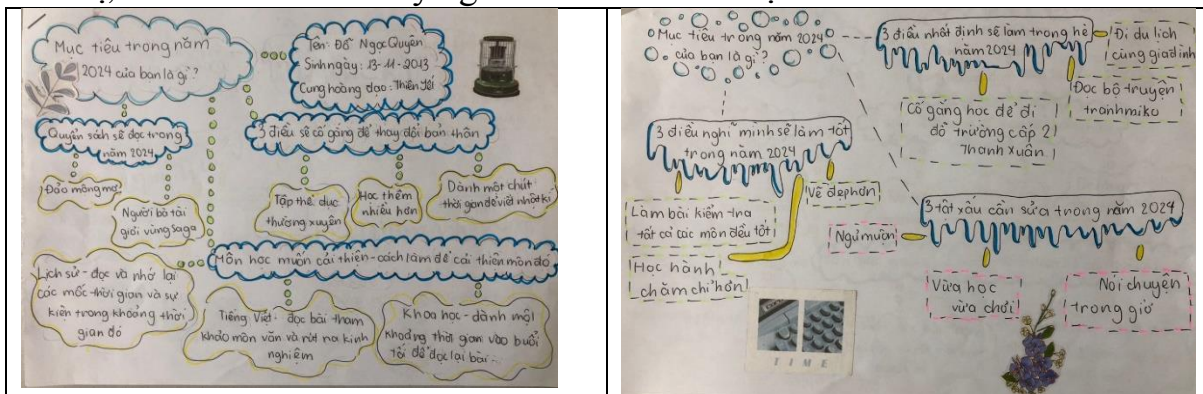 Mục tiêu trong năm
2024 của bạn là gì?
Tên: Đỗ Ngọc Quyên
Sinh ngày: 13-11-2013
Cung hoàng đạo: Thiên Yết
Quyển sách sẽ đọc trong
năm 2024
3 điều sẽ cố gắng để thay đổi bản thân
Đảo mộng mơ
Người bà tài
giỏi vùng Saga
Tập thể dục
thường xuyên
Học thêm
nhiều hơn
Dành một chút
thời gian để viết nhật kí
Môn học muốn cải thiện - cách làm để cải thiện môn đó
Lịch sử - đọc và nhớ lại
các mốc thời gian và sự
kiện trong khoảng thời
gian đó
Tiếng Việt - đọc bài tham
khảo môn văn và rút ra kinh
nghiệm
Khoa học - dành một
khoảng thời gian vào buổi
tối để đọc lại bài
Mục tiêu trong năm 2024
của bạn là gì?
3 điều nhất định sẽ làm trong hè
năm 2024
Đi du lịch
cùng gia đình
Đọc bộ truyện
tranh miko
Cố gắng học để đi
đỗ trường cấp 2
Thanh Xuân
3 điều nghĩ mình sẽ làm tốt
trong năm 2024
Vẽ đẹp hơn
Làm bài kiểm tra
tất cả các môn đều tốt
Học hành
chăm chỉ hơn
3 tật xấu cần sửa trong năm 2024
Ngủ muộn
Vừa học
vừa chơi
Nói chuyện
trong giờ
TIME